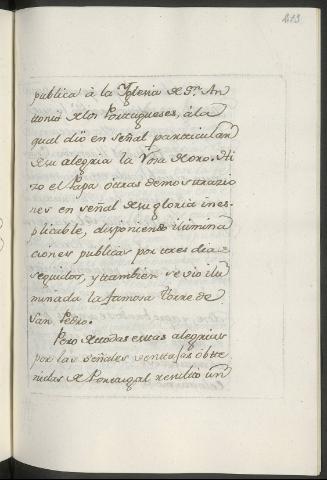 213
publica à la Iglesia de Sn. An
tonio de los Portugueses, á la
qual dió en señal particular
de su alegria la Rosa de oro. Hi
zo el Papa otras demostrazio
nes en señal de su gloria ines
plicable, disponiendo ilumina
ciones publicas por tres dias
seguidos, y tambien se vio ilu
minada la famosa Torre de
San Pedro.
Pero de todas estas alegrias
por las señales ventajas obte
nidas de Portugal resultó un